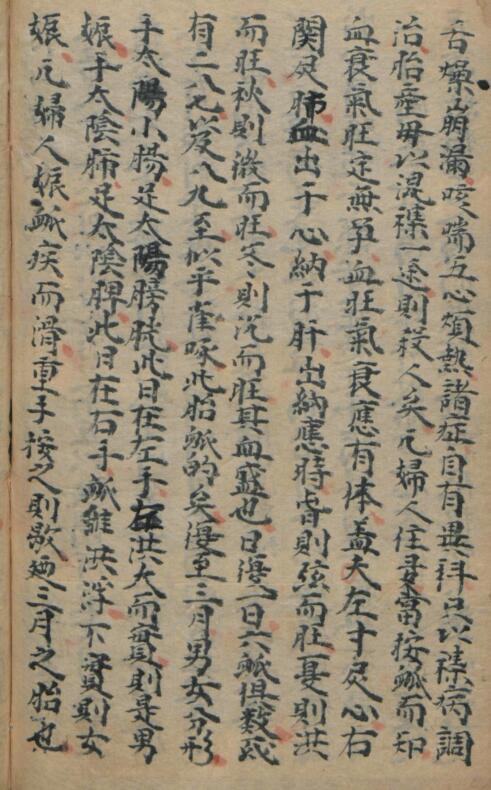 舌燥崩漏咳喘五心煩熱諸症自有異科只以襍病調
治胎產毋以混襍一途則殺人矣凡婦人住妻當按脉而知
血衰氣旺定無孕血旺氣衰應有体盖夫左寸是心右
関是肺血出于心納于肝出納應時春則弦而旺夏則洪
而旺秋則微而旺冬々則沉而旺其血盛也日復一日六脉俱数或
有二八七以及八九至似乎雀啄此胎脉的矣復至三月男女分形
手太陽小腸足太陽膀胱此日在左手洪大而實則是男
娠手太陰肺足太陰脾此日在右手脉雖洪浮不實則女
娠凡婦人娠脉疾而滑重手按之則散廼三月之胎也